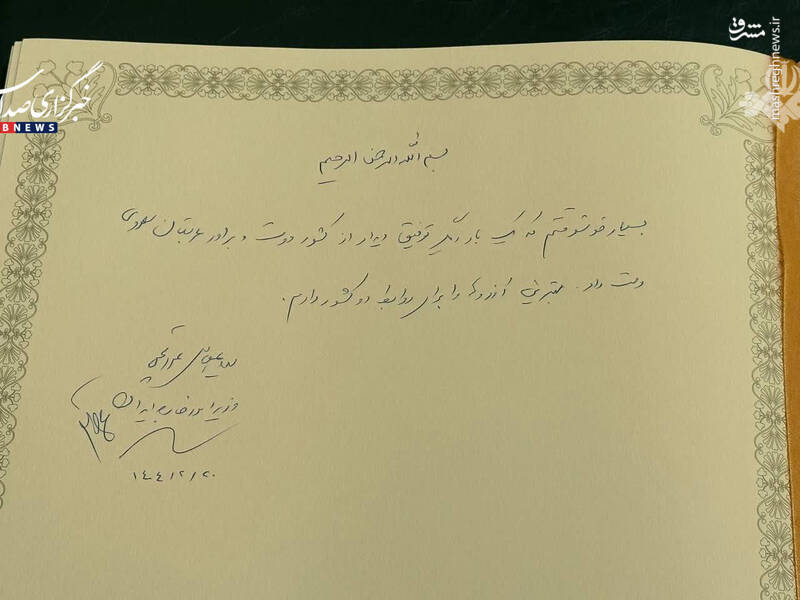 مشرق
mashreghnews.ir
خبرگزاری صدا
BNEWS
بسم الله الرحمن الرحیم
بسیار خوشوقتم که یک بار دیگر توفیق دیدار از کشور دوست و برادر عربستان سعودی
دست داد. بهترین آرزوها را برای روابط دو کشور دارم.
سید عباس عراقچی
وزیر امور خارجه ایران
۱۴۰۴/۲/۲۰